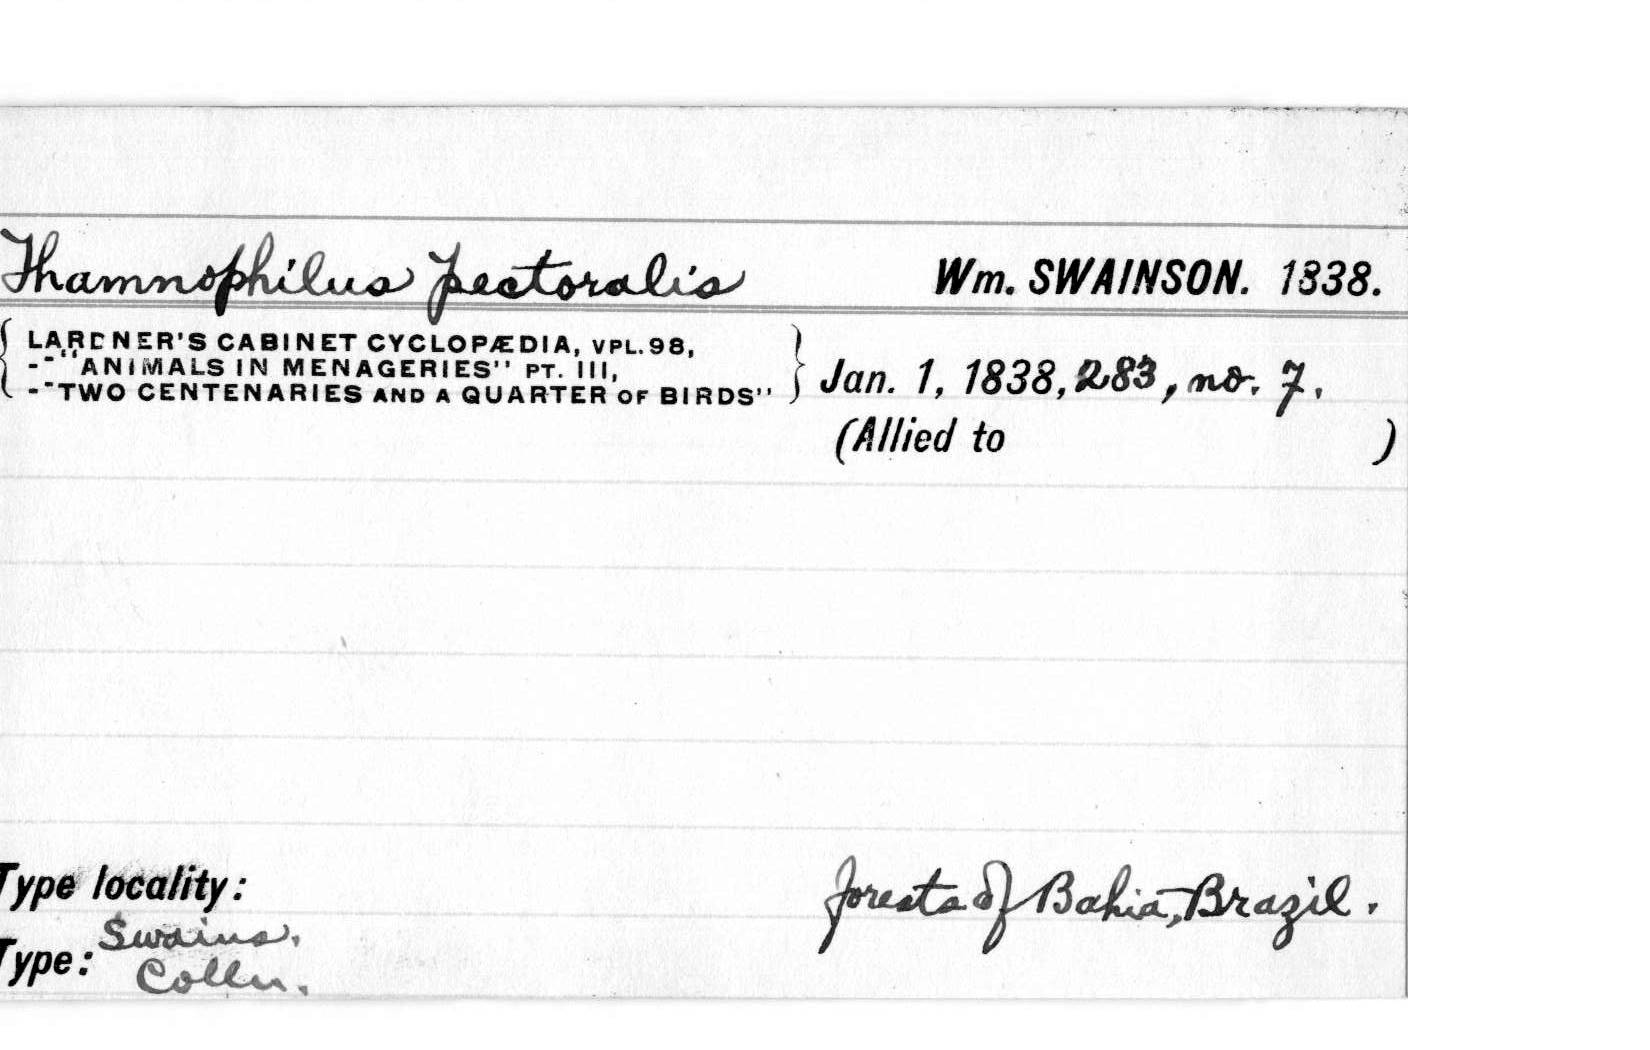 Thamnophilus pectoralis Wm. SWAINSON. 1838.
{ LARDNER'S CABINET CYCLOPÆDIA, VPL. 98,
-- "ANIMALS IN MENAGERIES" PT. III, } Jan. 1, 1838, 283, no. 7.
-- "TWO CENTENARIES AND A QUARTER OF BIRDS"
(Allied to )
Type locality: forests of Bahia, Brazil.
Swains.
Type: Colln.